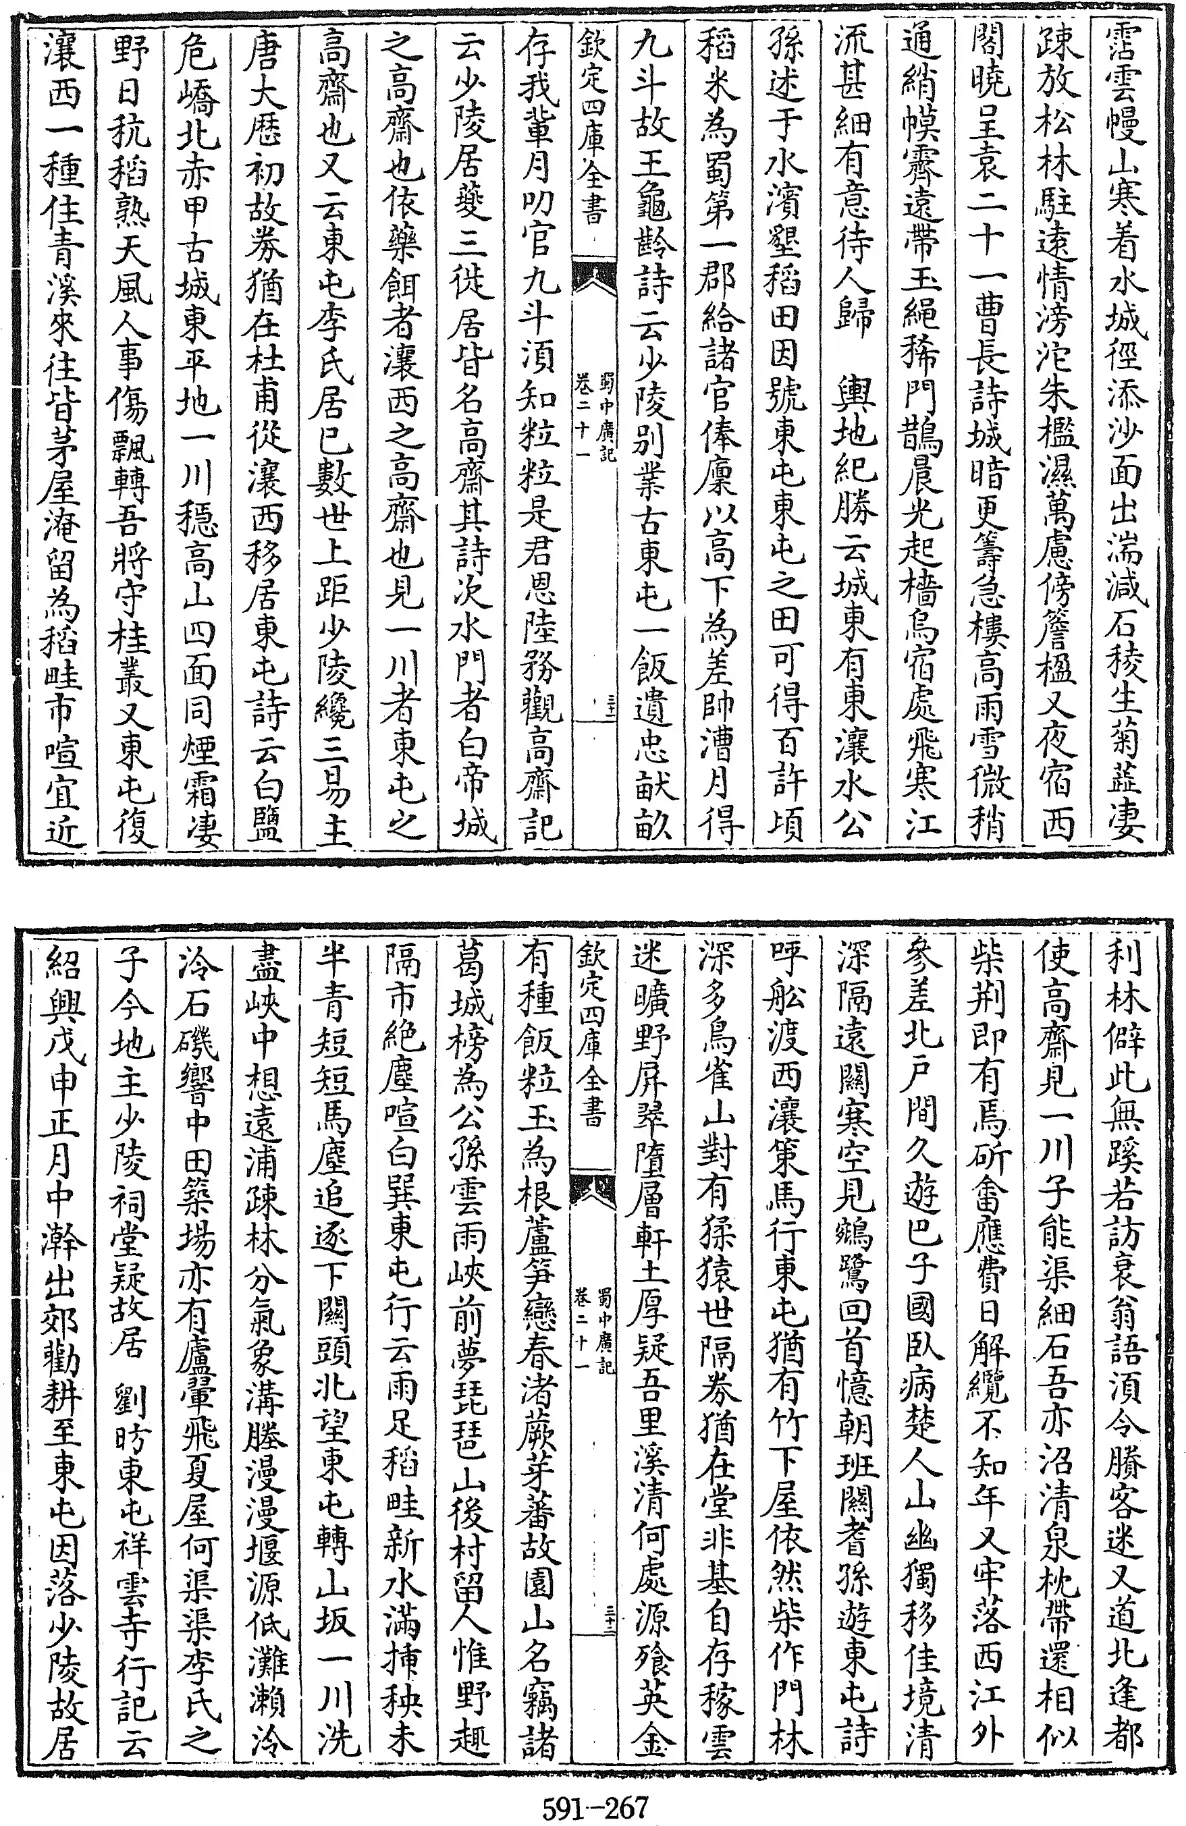 霑雲幔山寒着水城徑添沙面出湍減石稜生菊蘂凄
疎放松林駐遠情滂沱朱檻濕萬慮傍簷楹又夜宿西
閣曉呈袁二十一曹長詩城暗更籌急樓高雨雪微稍
通綃幙霽遠帶玉繩稀門鵲晨光起檣烏宿處飛寒江
流甚細有意待人歸　輿地紀勝云城東有東瀼水公
孫述于水濱墾稻田因號東屯東屯之田可得百許頃
稻米為蜀第一郡給諸官俸廩以高下為差帥漕月得
九斗故王龜齡詩云少陵别業古東屯一飯遺忠畎畝
欽定四庫全書
蜀中廣記
卷二十一
存我輩月叨官九斗須知粒粒是君恩陸務觀高齋記
云少陵居夔三徙居皆名高齋其詩次水門者白帝城
之高齋也依藥餌者瀼西之高齋也見一川者東屯之
高齋也又云東屯李氏居已數世上距少陵纔三易主
唐大歴初故劵猶在杜甫從瀼西移居東屯詩云白鹽
危嶠北赤甲古城東平地一川穩高山四面同煙霜凄
野日秔稻熟天風人事傷飄轉吾將守桂叢又東屯復
瀼西一種住青溪來往皆茅屋淹留為稻畦市喧宜近
利林僻此無蹊若訪衰翁語須令賸客迷又道北逢都
使高齋見一川子能渠細石吾亦沼清泉枕帶還相似
柴荆即有焉斫畬應費日解纜不知年又牢落西江外
參差北戸間久遊巴子國臥病楚人山幽獨移佳境清
深隔遠關寒空見鵁鷺回首憶朝班闗耆孫遊東屯詩
呼舩渡西瀼策馬行東屯猶有竹下屋依然柴作門林
深多鳥雀山對有猱猿世隔劵猶在堂非基自存稼雲
迷曠野屏翠墮層軒土厚疑吾里溪清何處源飱英金
欽定四庫全書
蜀中廣記
卷二十一
有種飯粒玉為根蘆筍戀春渚蕨芽蕃故園山名竊諸
葛城榜為公孫雲雨峽前夢琵琶山後村留人惟野趣
隔市絶塵喧白巽東屯行云雨足稻畦新水滿揷秧未
半青短短馬塵追逐下關頭北望東屯轉山坂一川洗
盡峽中想遠浦疎林分氣象溝塍漫漫堰源低灘瀨泠
泠石磯響中田築場亦有廬翬飛夏屋何渠渠李氏之
子今地主少陵祠堂疑故居　劉昉東屯祥雲寺行記云
紹興戊申正月中澣出郊勸耕至東屯因落少陵故居
591-267